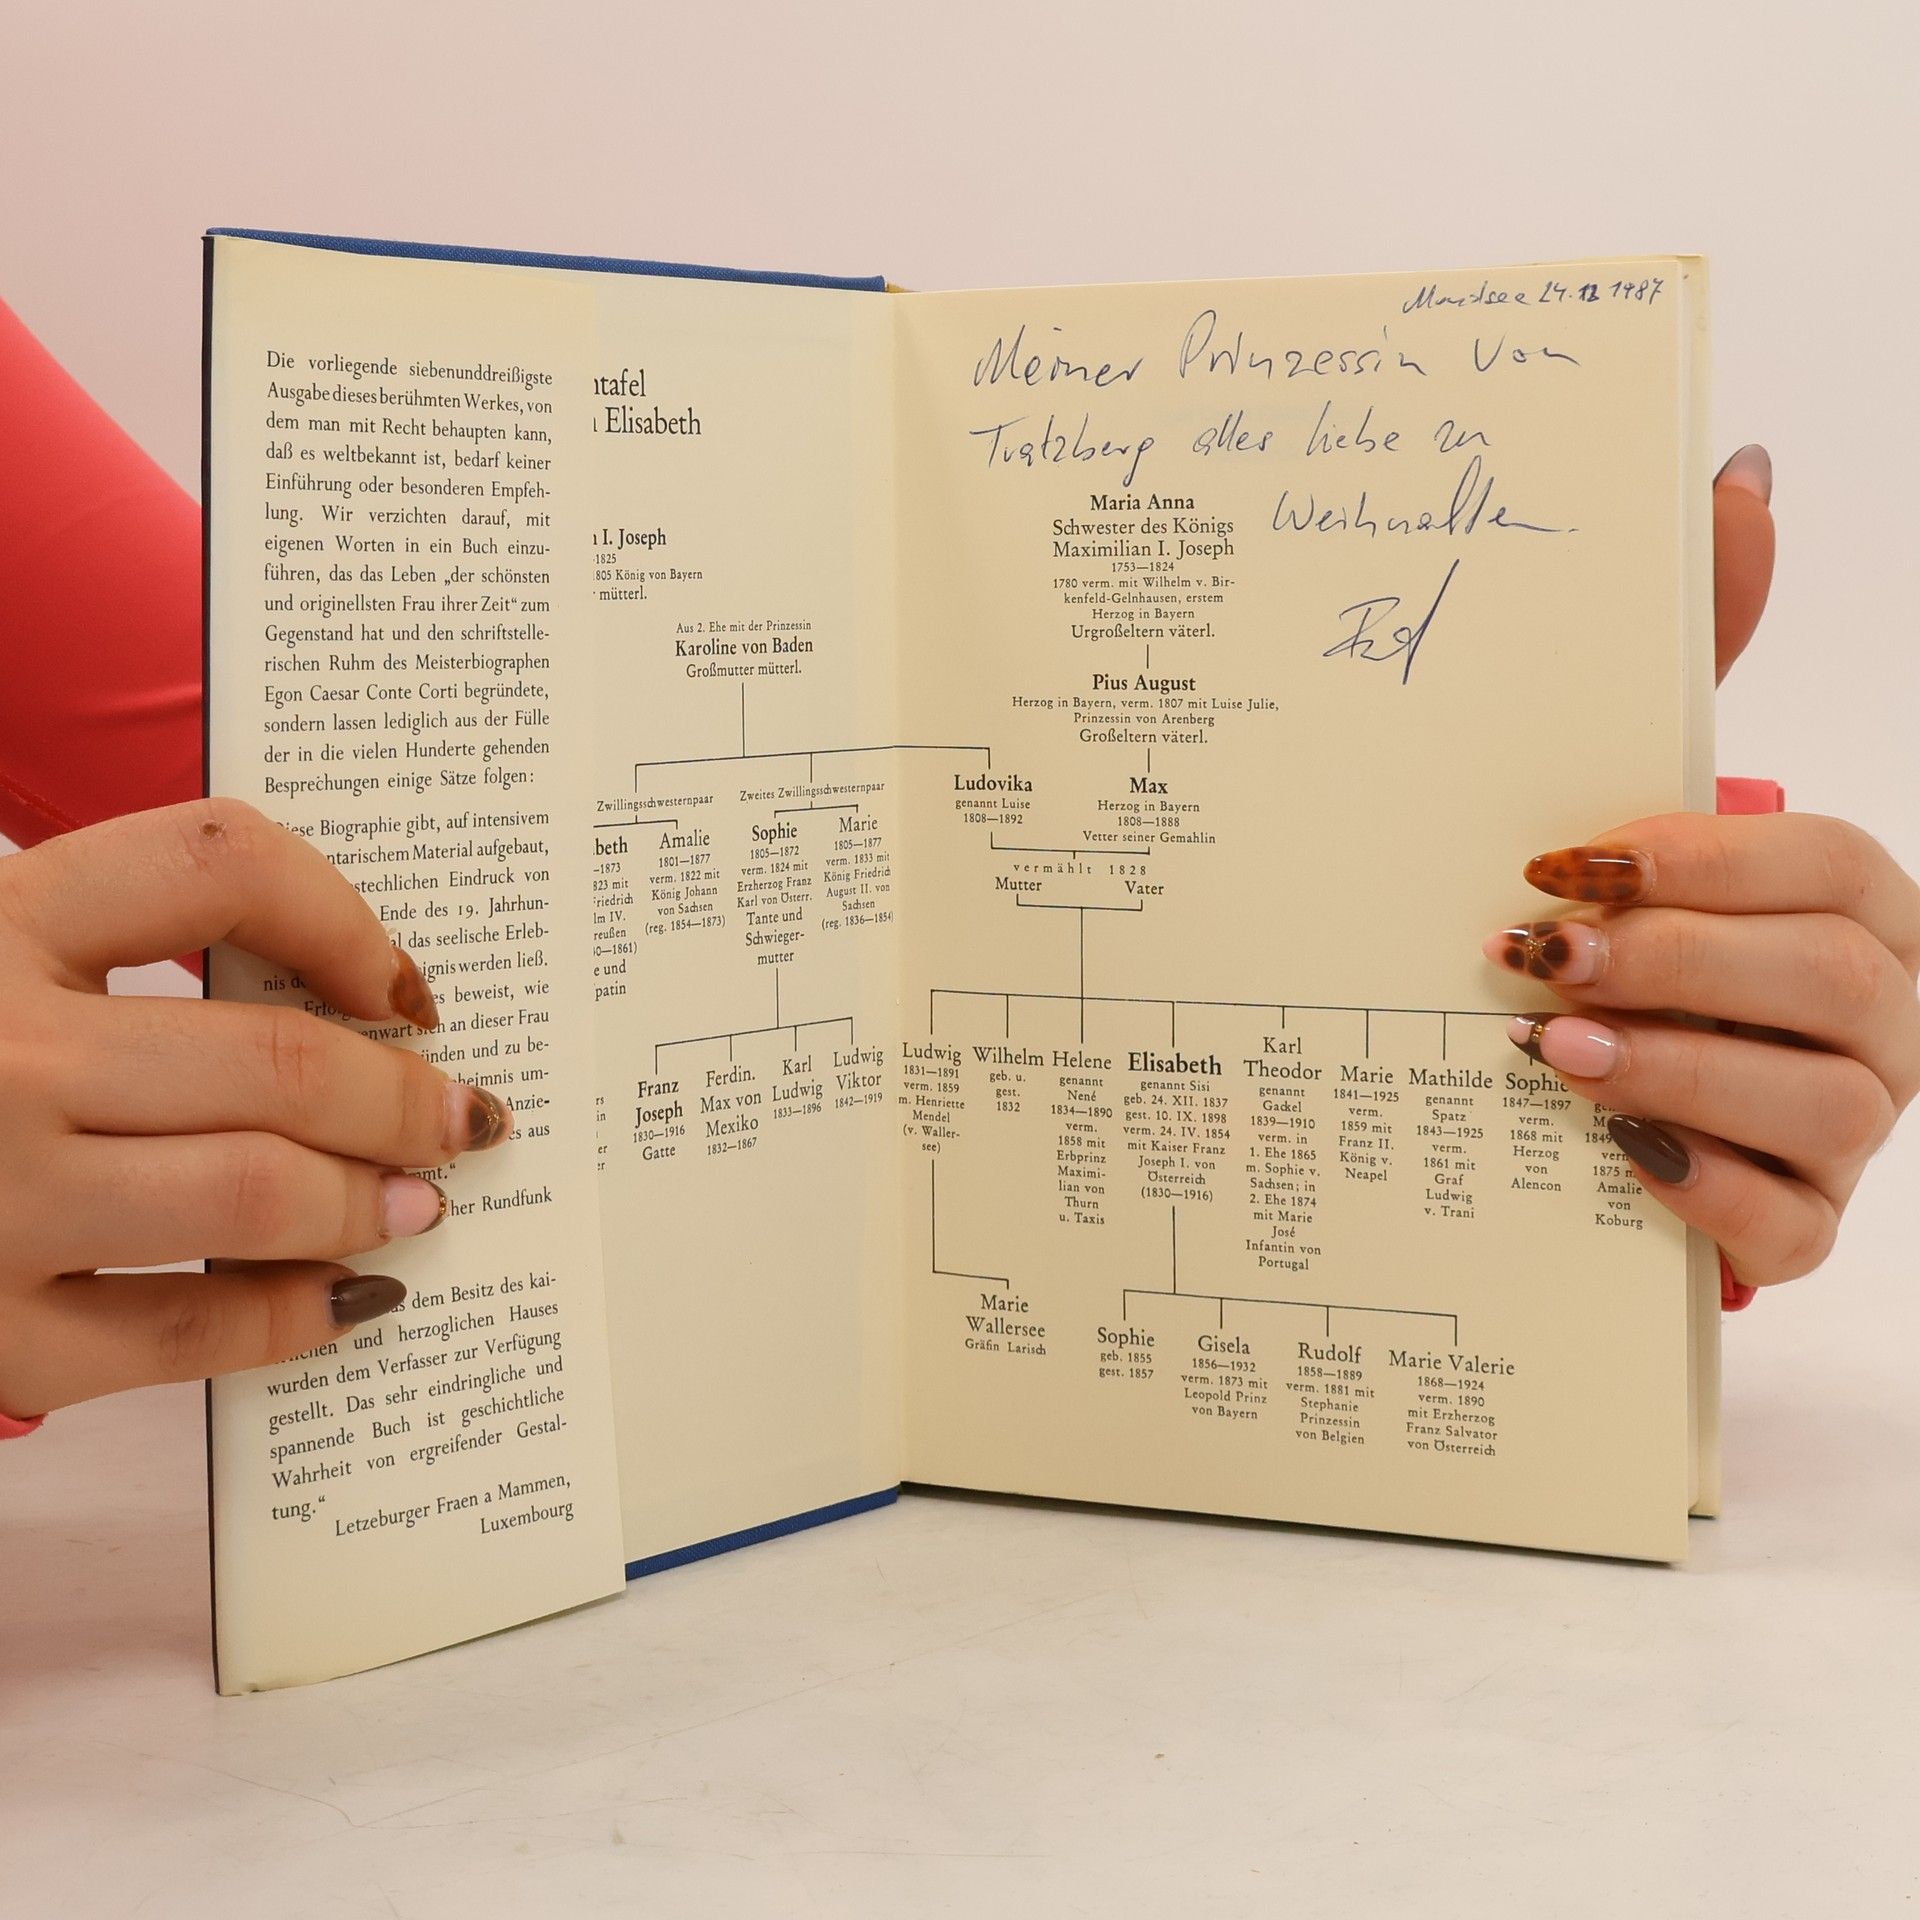 Die vorliegende siebenunddreißigste
Ausgabe dieses berühmten Werkes, von
dem man mit Recht behaupten kann,
daß es weltbekannt ist, bedarf keiner
Einführung oder besonderen Empfeh-
lung. Wir verzichten darauf, mit
eigenen Worten in ein Buch einzu-
führen, das das Leben „der schönsten
und originellsten Frau ihrer Zeit“ zum
Gegenstand hat und den schriftstelle-
rischen Ruhm des Meisterbiographen
Egon Caesar Conte Corti begründete,
sondern lassen lediglich aus der Fülle
der in die vielen Hunderte gehenden
Besprechungen einige Sätze folgen:
Biographie gibt, auf intensivem
ntarischem Material aufgebaut,
stechlichen Eindruck von
Ende des 19. Jahrhun-
das seelische Erleb-
ignis werden ließ.
nis
es beweist, wie
enwart sich an dieser Frau
ünden und zu be-
heimnis um-
Anzie-
es aus
mt.“
her Rundfunk
dem Besitz des kai-
und herzoglichen Hauses
wurden dem Verfasser zur Verfügung
gestellt. Das sehr eindringliche und
spannende Buch ist geschichtliche
Wahrheit von ergreifender Gestal-
tung.“
Letzeburger Fraen a Mammen,
Luxembourg
ntafel
Elisabeth
I. Joseph
1825
805 König von Bayern
mütterl.
Aus 2. Ehe mit der Prinzessin
Karoline von Baden
Großmutter mütterl.
Zwillingsschwesternpaar
Zweites Zwillingsschwesternpaar
beth
—1873
823 mit
riedrich
lm IV.
reußen
0—1861)
e und
patin
Amalie
1801—1877
verm. 1822 mit
König Johann
von Sachsen
(reg. 1854—1873)
Sophie
1805—1872
verm. 1824 mit
Erzherzog Franz
Karl von Österr.
Tante und
Schwieger-
mutter
Marie
1805—1877
verm. 1833 mit
König Friedrich
August II. von
Sachsen
(reg. 1836—1854)
Franz
Joseph
1830—1916
Gatte
Ferdin.
Max von
Mexiko
1832—1867
Karl
Ludwig
1833—1896
Ludwig
Viktor
1842—1919
Mondsee 24.12 1987
Meiner Prinzessin von
Tratzberg alles liebe zu
Weihnachten
Maria Anna
Schwester des Königs
Maximilian I. Joseph
1753—1824
1780 verm. mit Wilhelm v. Bir-
kenfeld-Gelnhausen, erstem
Herzog in Bayern
Urgroßeltern väterl.
Pius August
Herzog in Bayern, verm. 1807 mit Luise Julie,
Prinzessin von Arenberg
Großeltern väterl.
Ludovika
genannt Luise
1808—1892
Max
Herzog in Bayern
1808—1888
Vetter seiner Gemahlin
vermählt 1828
Mutter Vater
Ludwig
1831—1891
verm. 1859
m. Henriette
Mendel
(v. Waller-
see)
Wilhelm
geb. u.
gest.
1832
Helene
genannt
Nené
1834—1890
verm.
1858 mit
Erbprinz
Maximi-
lian von
Thurn
u. Taxis
Elisabeth
genannt Sisi
geb. 24. XII. 1837
gest. 10. IX. 1898
verm. 24. IV. 1854
mit Kaiser Franz
Joseph I. von
Österreich
(1830—1916)
Karl
Theodor
genannt
Gackel
1839—1910
verm. in
1. Ehe 1865
m. Sophie v.
Sachsen; in
2. Ehe 1874
mit Marie
José
Infantin von
Portugal
Marie
1841—1925
verm.
1859 mit
Franz II.
König v.
Neapel
Mathilde
genannt
Spatz
1843—1925
verm.
1861 mit
Graf
Ludwig
v. Trani
Sophie
1847—1897
verm.
1868 mit
Herzog
von
Alencon
1849
1875 m
Amalie
von
Koburg
Marie
Wallersee
Gräfin Larisch
Sophie
geb. 1855
gest. 1857
Gisela
1856—1932
verm. 1873 mit
Leopold Prinz
von Bayern
Rudolf
1858—1889
verm. 1881 mit
Stephanie
Prinzessin
von Belgien
Marie Valerie
1868—1924
verm. 1890
mit Erzherzog
Franz Salvator
von Österreich